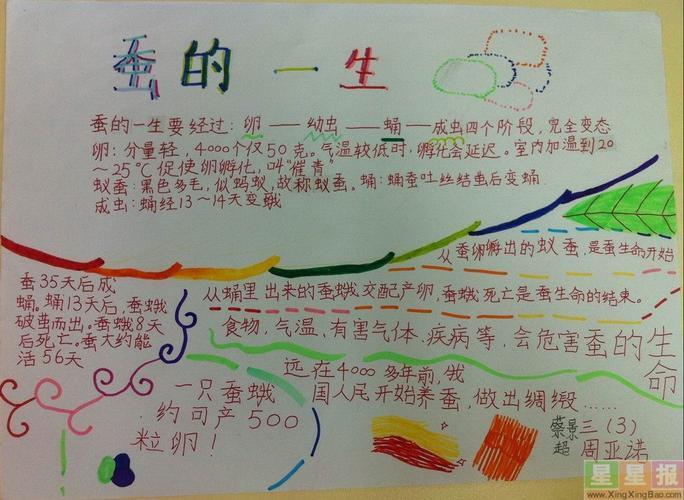 蚕的一生
蚕的一生要经过：卵——幼虫——蛹——成虫四个阶段，完全变态
卵：分量轻，4000个仅50克。气温较低时，孵化会延迟。室内加温到20
～25℃促使卵孵化，叫“催青”
蚁蚕：黑色多毛，似蚂蚁，故称蚁蚕。蛹：蛹蚕吐丝结茧后变蛹
成虫：蛹经13～14天变蛾
从蚕卵孵出的蚁蚕，是蚕生命开始
从蛹里出来的蚕蛾交配产卵，蚕蛾死亡是蚕生命的结束。
蚕35天后成
蛹。蛹13天后，蚕蛾
破茧而出。蚕蛾8天
后死亡。蚕大约能
活56天
食物，气温，有害气体，疾病等，会危害蚕的生命
远在4000多年前，我
国人民开始养蚕，做出绸缎……
一只蚕蛾
约可产500
粒卵！
蔡景超
三（3）
周亚诺
星星报
www.XingXingBao.com